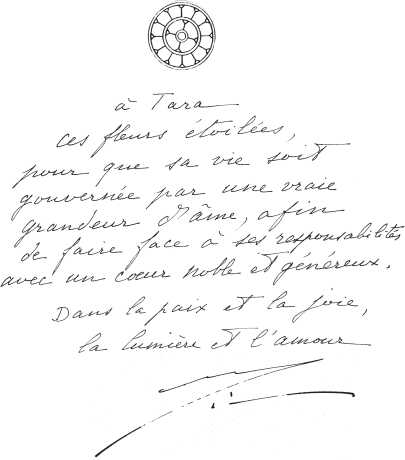 à Tara
ces fleurs étoilées,
pour que sa vie soit
gouvernée par une vraie
grandeur d'âme, afin
de faire face à ses responsabilités
avec un cœur noble et généreux.
Dans la paix et la joie,
la lumière et l'amour